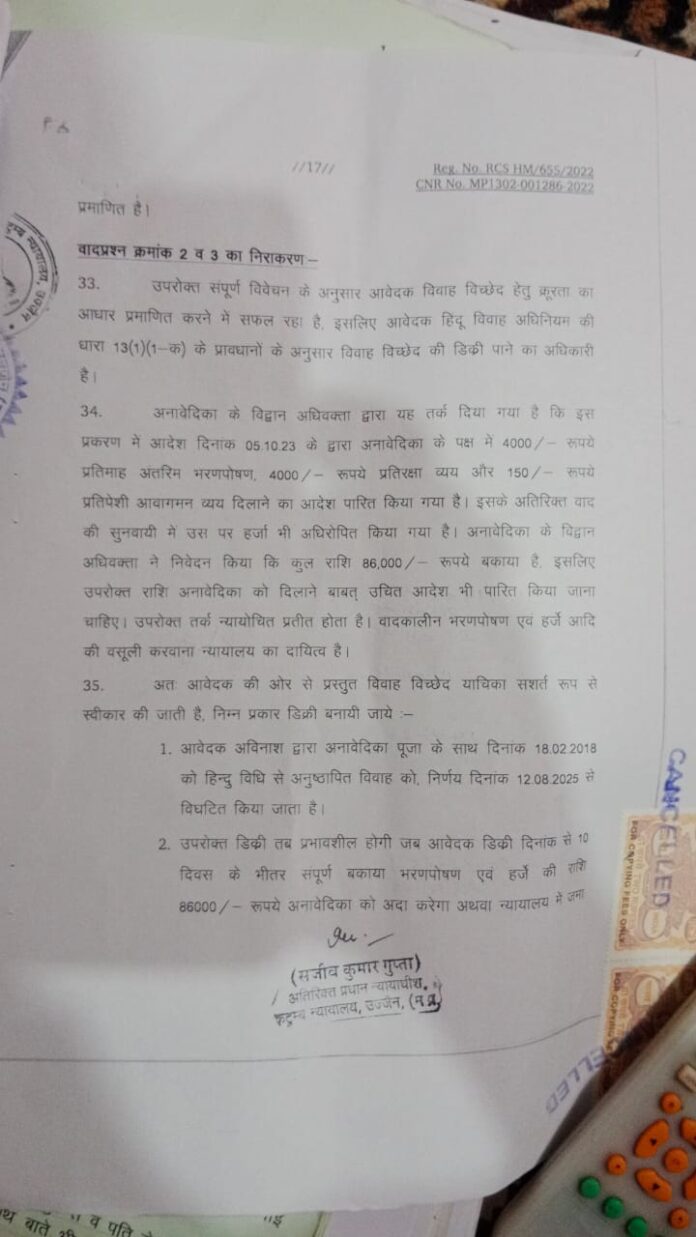 //17//
Reg. No. RCS HM/655/2022
CNR No. MP1302-001286-2022
प्रमाणित है।
वादप्रश्न क्रमांक 2 व 3 का निराकरण:–
33. उपरोक्त संपूर्ण विवेचन के अनुसार आवेदक विवाह विच्छेद हेतु क्रूरता का
आधार प्रमाणित करने में सफल रहा है, इसलिए आवेदक हिंदू विवाह अधिनियम की
धारा 13(1)(1–क) के प्रावधानों के अनुसार विवाह विच्छेद की डिक्री पाने का अधिकारी
है।
34. अनावेदिका के विद्वान अधिवक्ता द्वारा यह तर्क दिया गया है कि इस
प्रकरण में आदेश दिनांक 05.10.23 के द्वारा अनावेदिका के पक्ष में 4000/– रूपये
प्रतिमाह अंतरिम भरणपोषण, 4000/– रूपये प्रतिरक्षा व्यय और 150/– रूपये
प्रतिपेशी आवागमन व्यय दिलाने का आदेश पारित किया गया है। इसके अतिरिक्त वाद
की सुनवायी में उस पर हर्जा भी अधिरोपित किया गया है। अनावेदिका के विद्वान
अधिवक्ता ने निवेदन किया कि कुल राशि 86,000/– रूपये बकाया है, इसलिए
उपरोक्त राशि अनावेदिका को दिलाने बाबत् उचित आदेश भी पारित किया जाना
चाहिए। उपरोक्त तर्क न्यायोचित प्रतीत होता है। वादकालीन भरणपोषण एवं हर्जे आदि
की वसूली करवाना न्यायालय का दायित्व है।
35. अतः आवेदक की ओर से प्रस्तुत विवाह विच्छेद याचिका सशर्त रूप से
स्वीकार की जाती है, निम्न प्रकार डिक्री बनायी जाये :–
1. आवेदक अविनाश द्वारा अनावेदिका पूजा के साथ दिनांक 18.02.2018
को हिन्दु विधि से अनुष्ठापित विवाह को, निर्णय दिनांक 12.08.2025 से
विघटित किया जाता है।
2. उपरोक्त डिक्री तब प्रभावशील होगी जब आवेदक डिक्री दिनांक से 10
दिवस के भीतर संपूर्ण बकाया भरणपोषण एवं हर्जे की राशि
86000/– रूपये अनावेदिका को अदा करेगा अथवा न्यायालय में जमा
(संजीव कुमार गुप्ता)
अतिरिक्त प्रधान न्यायाधीश,
कुटुम्ब न्यायालय, उज्जैन, (म.प्र.)
CANCELLED
FOR COPYING FEES ONLY
FOR COPYING